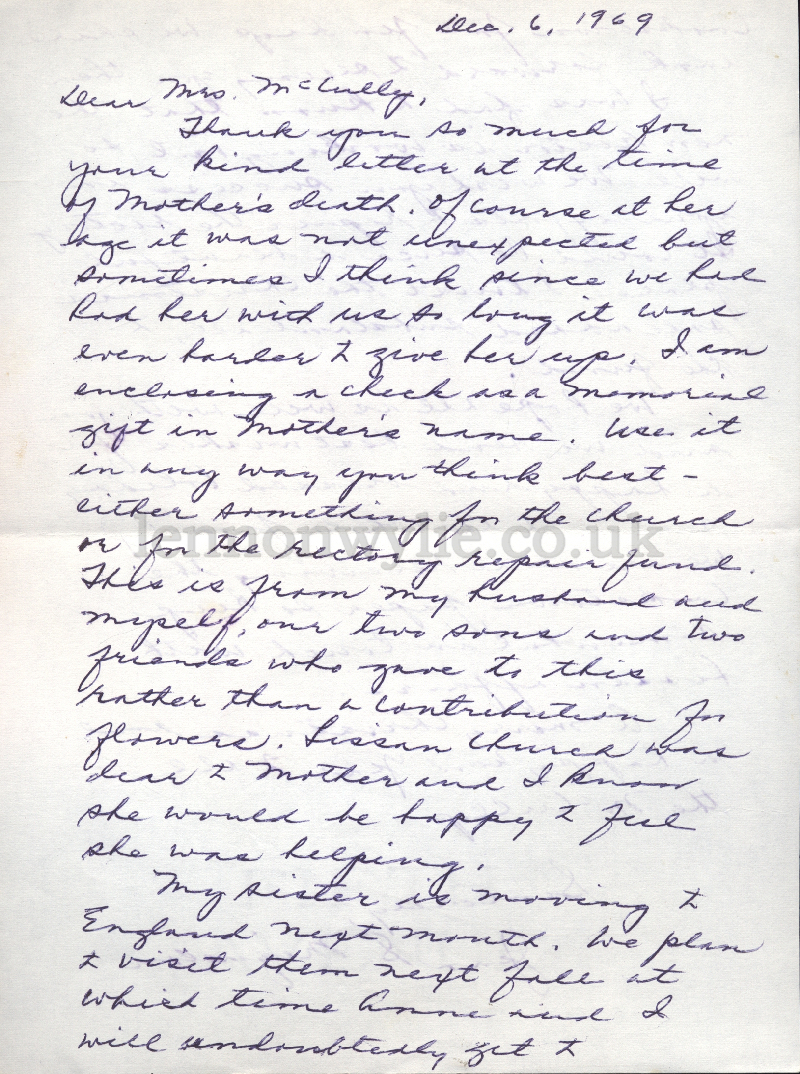 Dec. 6, 1969
Dear Mrs. McCully,
Thank you so much for
your kind letter at the time
of Mother's death. Of course at her
age it was not unexpected but
sometimes I think since we had
had her with us so long it was
even harder to give her up. I am
enclosing a check as a memorial
gift in Mother's name. Use it
in any way you think best -
either something for the church
lennonwylie.co.uk
or for the rectory repair fund.
This is from my husband and
myself, our two sons and two
friends who gave to this
rather than a contribution for
flowers. Lissan Church was
dear to Mother and I know
she would be happy to feel
she was helping.
My sister is moving to
England next month. We plan
to visit them next fall at
which time Anne and I
will undoubtedly get to